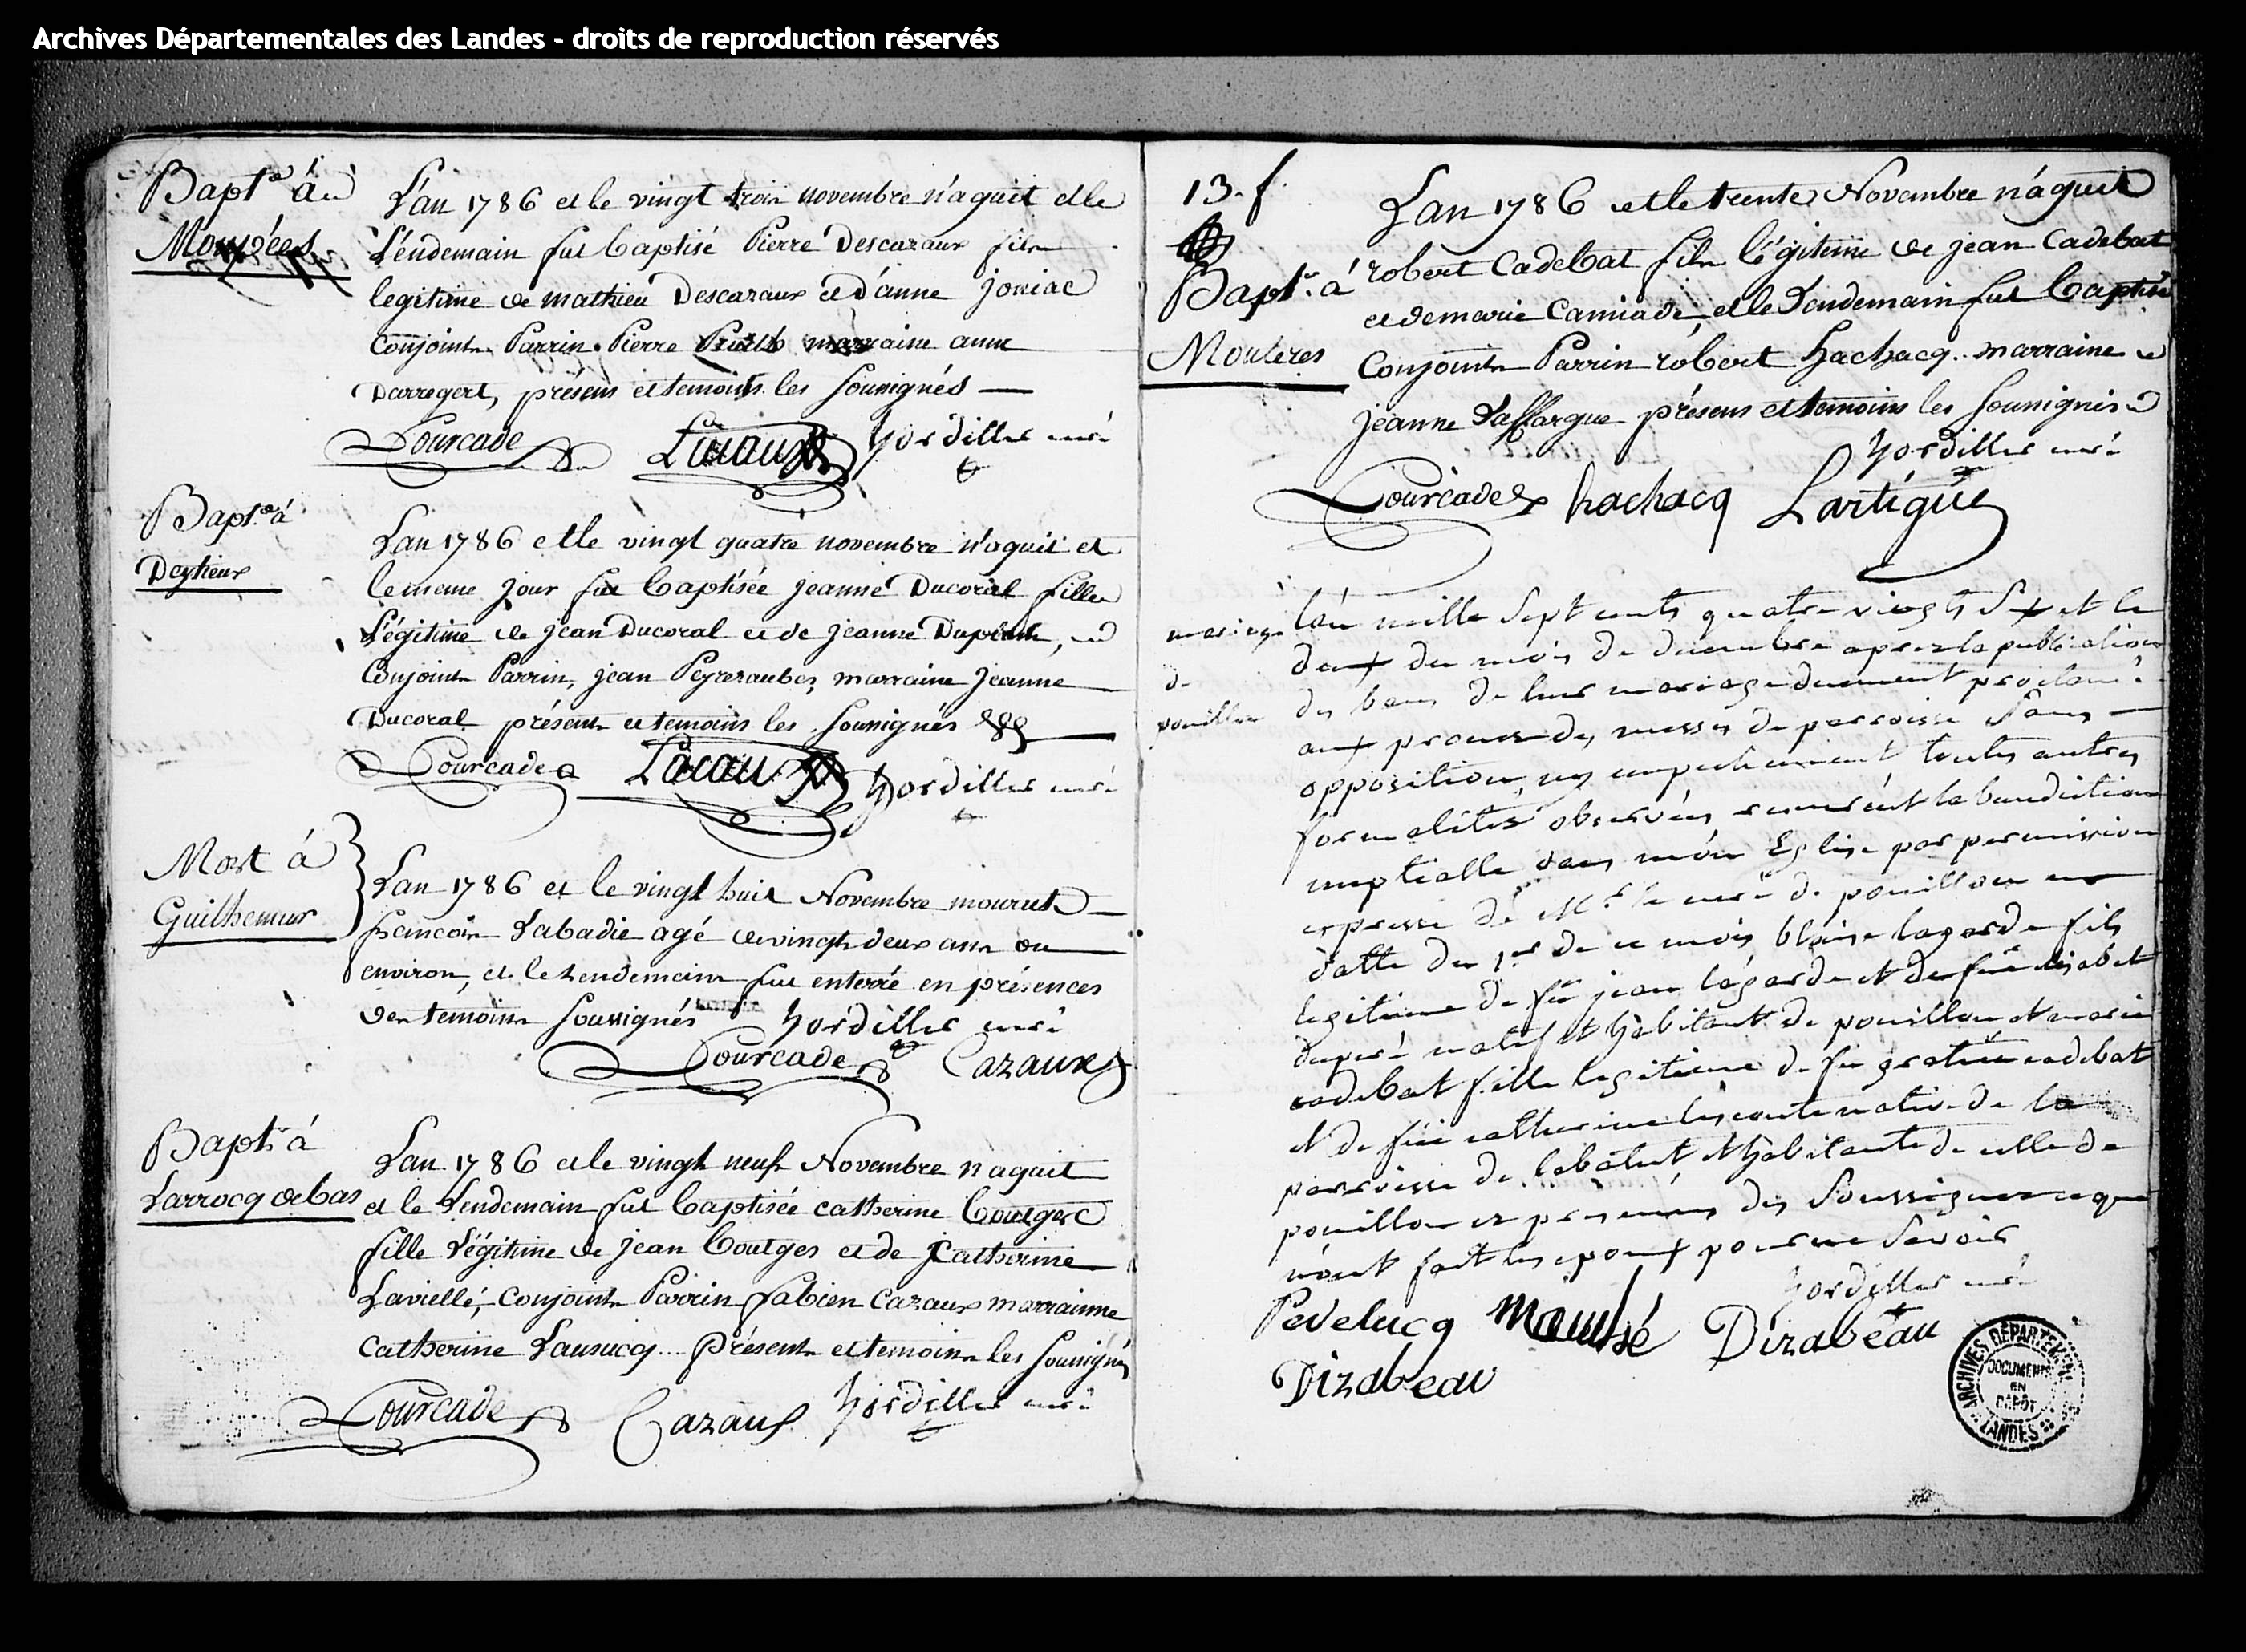 Archives Départementales des Landes - droits de reproduction réservés
Bapt.e á
L'an 1786 et le vingt trois novembre náquit et le
L'éndemain fut baptisé Pierre Descazaux fils
legitime de mathieu Descazaux et d'anne Joniac
Conjoints Parrin Pierre marraine anne
Darregert, présens et temoins les soussignés
Lourcade Lacaux hordiller curé
Bapt.e á
Deyheux
L'an 1786 et le vingt quatre novembre náquit et
le meme jour fut baptisée jeanne Ducoral fille
Légitime de jean Ducoral et de jeanne
Conjoints Parrin, jean marraine Jeanne
Ducoral présents et temoins les soussignés
Lourcade Lacaux hordiller curé
Mort á
Guilhemus
L'an 1786 et le vingt huit Novembre mourut
françois Labadie agé de vingt deux ans ou
environ, et le Lendemain fut enterré en présences
des temoins soussignés hordiller curé
Lourcade Cazaux
Bapt. á
Larrocq de bas
L'an 1786 et le vingt neuf Novembre náquit
et le Lendemain fut baptisée catherine
fille Légitime de jean Boutges et de Catherine
Lavielle, conjoints Parrin fabien Cazaux marrainne
Catherine Présents et temoins les soussignés
Lourcade Cazaux hordiller curé
13. f.
Bapt. á
Mouteres
L'an 1786 et le trente Novembre náquit
robert Cadebat fils légitime de jean Cadebat
et de marie Camiade, et le Lendemain fut baptisé
Conjoints Parrin robert hachacq.. marraine
jeanne Laffargue présens et temoins les soussignés
hordiller curé
Lourcade hachacq Lartigue
mariage
de
pouillon
l'an mille sept cents quatre vingts six et le
deux du mois de decembre aprez la publication
des bans de leur mariage duement proclamé
aux prones des messes de parroisse sans
opposition, ny empechement toutes autres
formalités observées, receurent la benediction
nuptialle dans mon Eglise par permission
expresse de Mr. le curé de pouillon en
datte du 1er de ce mois blaise lagarde fils
legitime de feu jean lagarde et de feue
duperé natif et habitant de pouillon et marie
cadebat fille legitime de feu cadebat
et de feue catherine native de la
parroisse de labatut et habitante de celle de
pouillon ez presences des soussignes ce que
n'ont fait les epoux pour ne savoir
hordiller curé
Pedelucq Dizabeau
Dizabeau
ARCHIVES DÉPARTEMENTALES LANDES
DOCUMENTS
EN
DÉPÔT